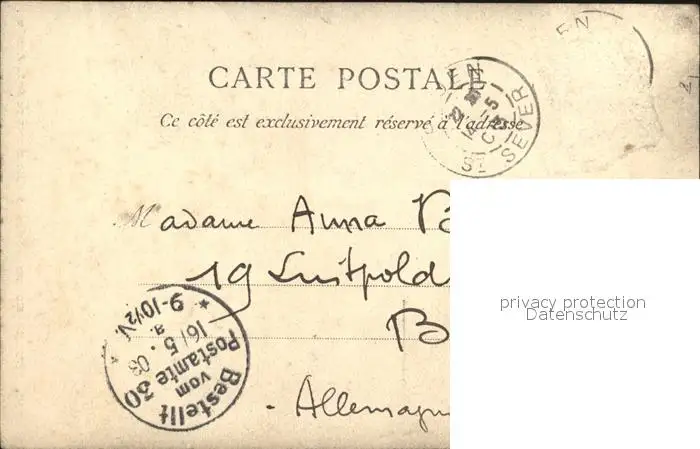 CARTE POSTALE
Ce côté est exclusivement réservé à l'adresse
ST SEVER
Madame Anna B
19 Luitpold
B
Allemagn
Bestellt
vom
Postamte 30
16/5.03
9-10½V.
privacy protection
Datenschutz